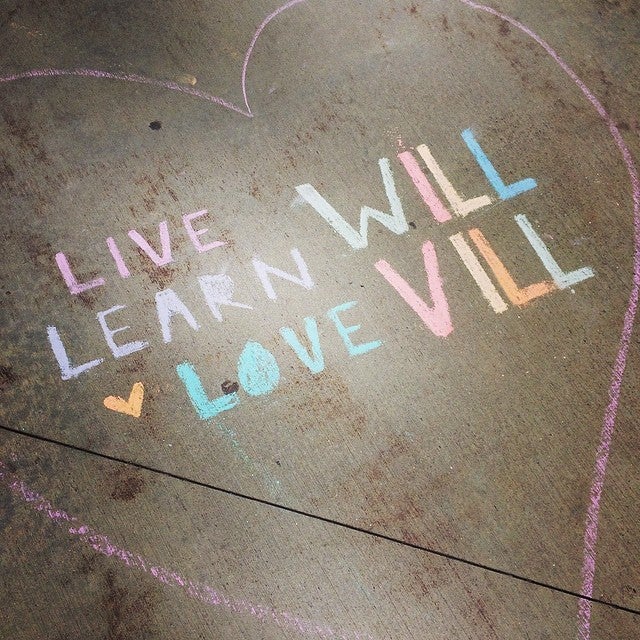 LIVE
LEARN
LOVE
WILL
VILL